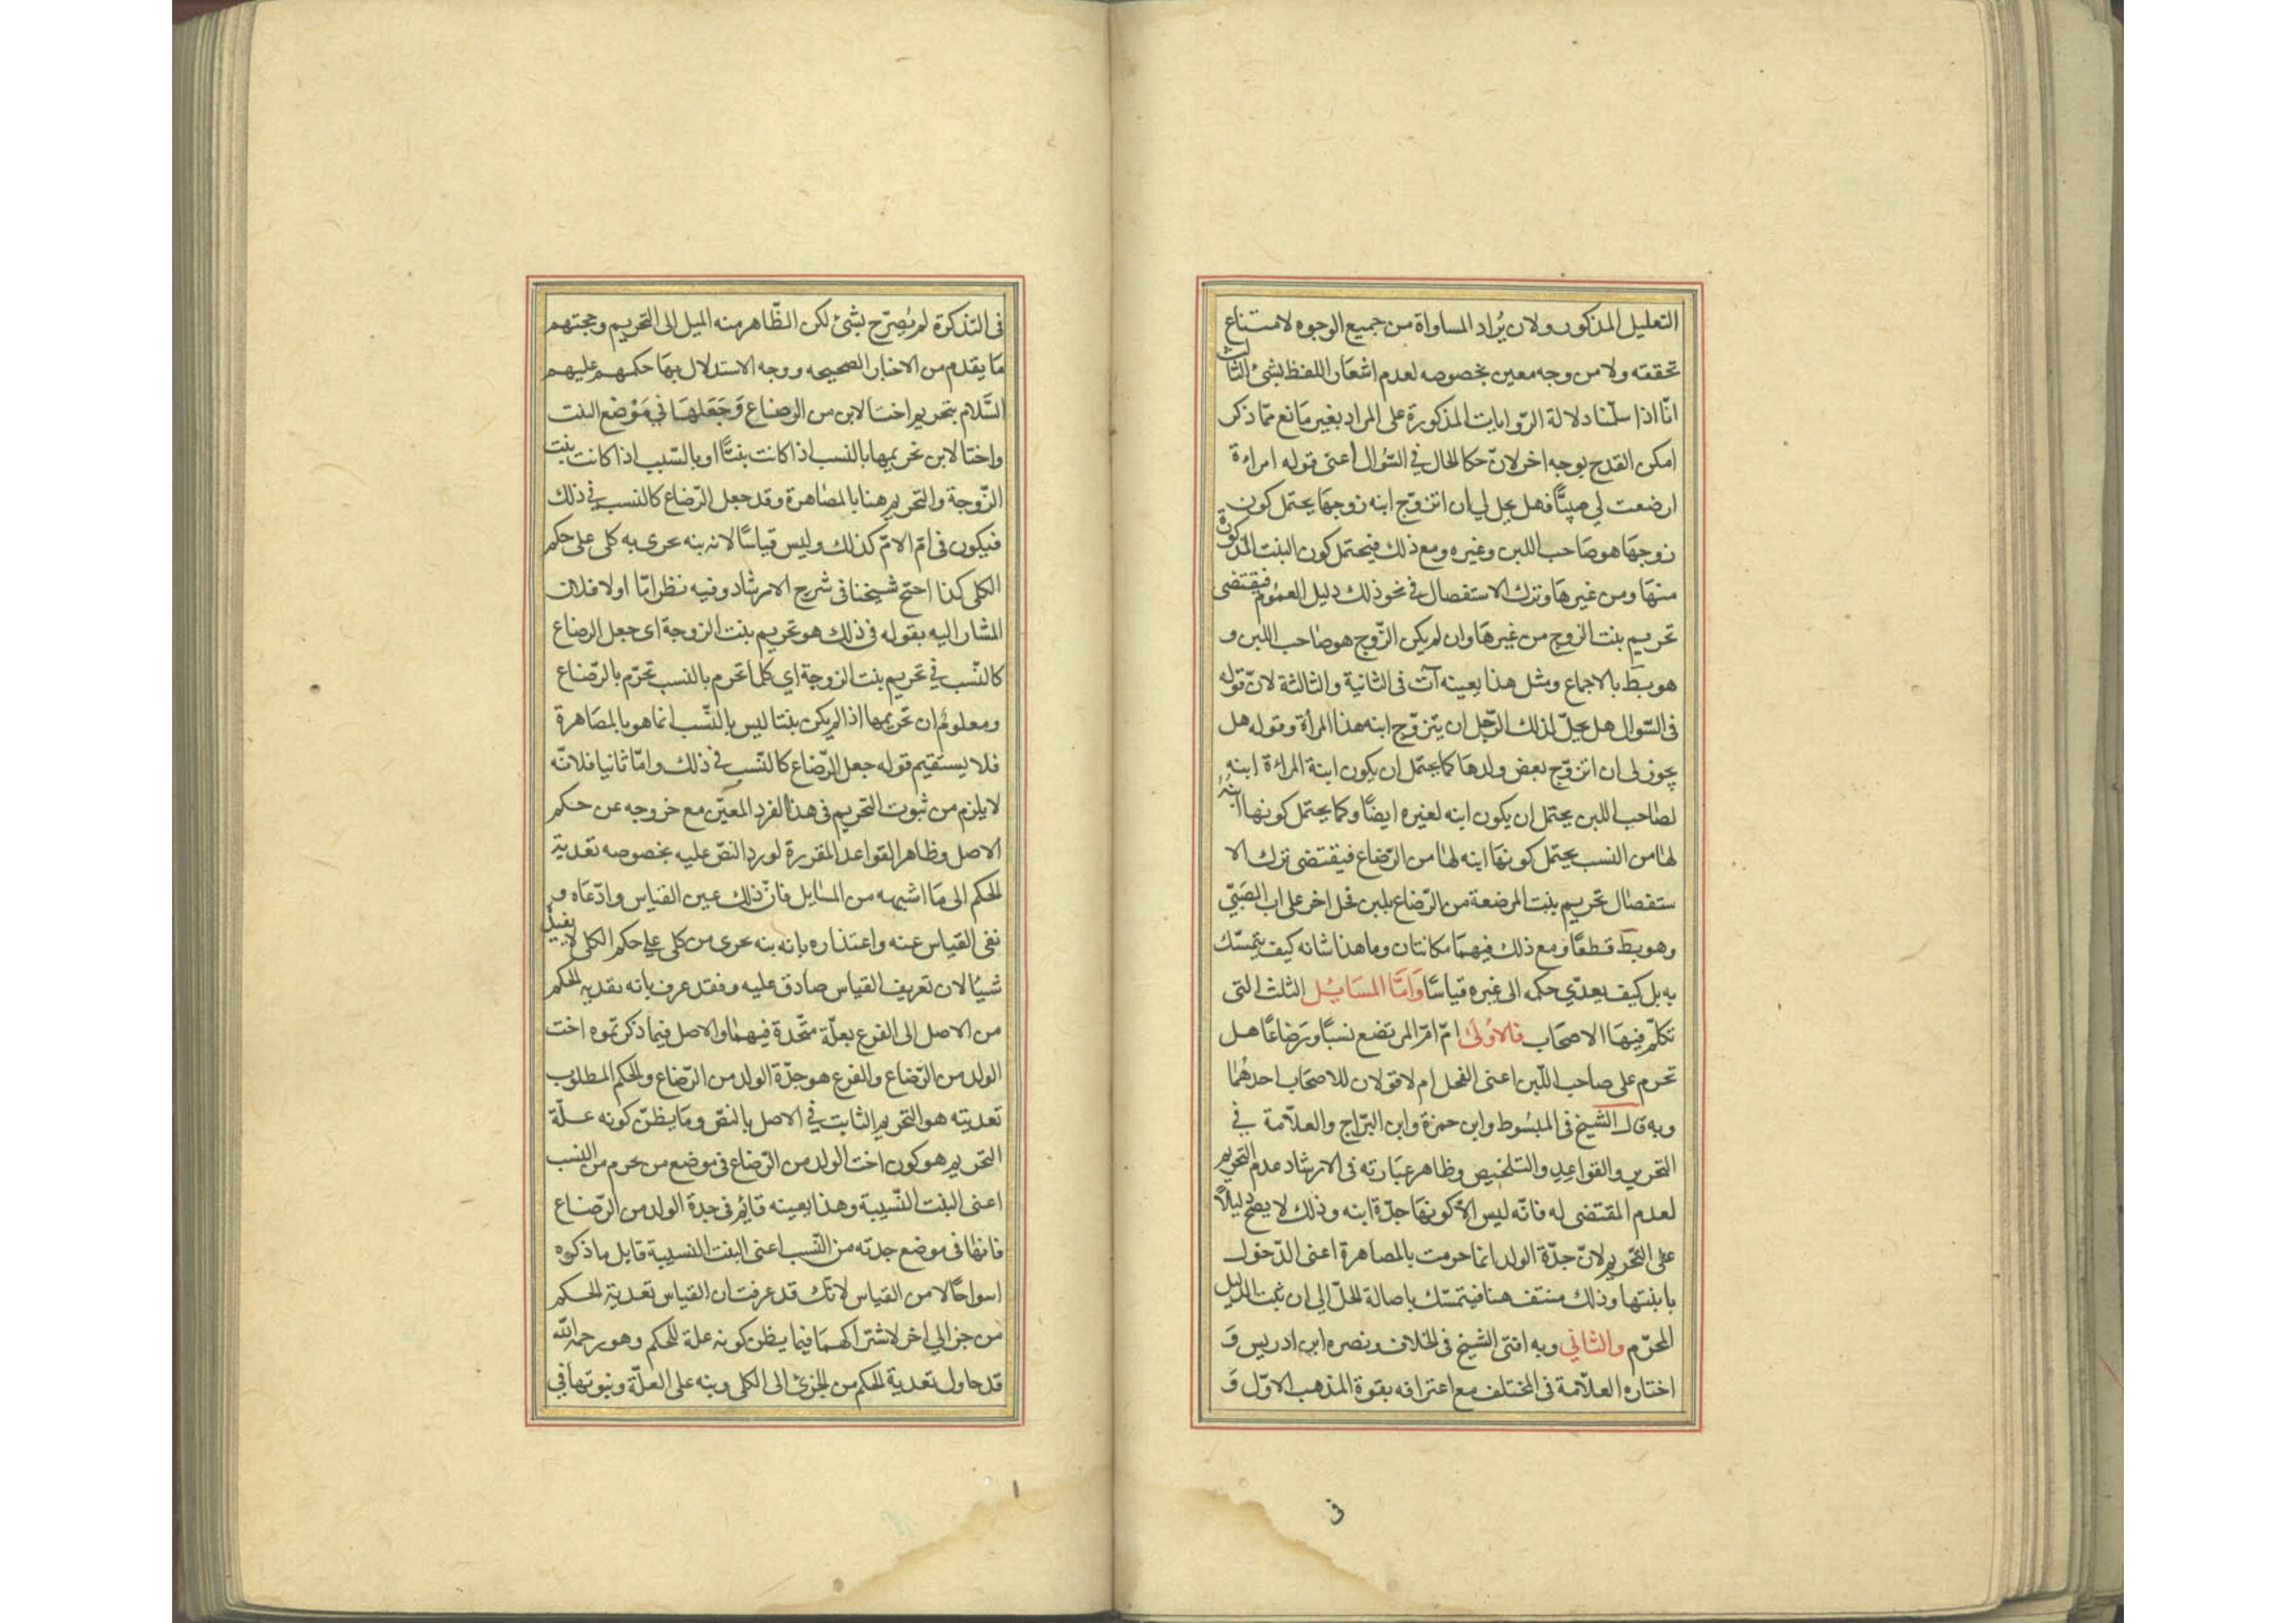 التعليل المذكور ولان يُراد المساواة من جميع الوجوه لامتناع
تحققته ولا من وجه معين بخصوصه لعدم اشعار اللفظ بشئ الثالث
انّا اذا سلّمنا دلالة الرّوايات المذكورة على المراد بغير مانع ممّا ذكر
امكن القدح بوجه اخر لانّ حكا الحال في السّؤال اعنى قوله امراءة
ارضعت لي صبيّاً فهل يحل لي ان اتزوّج ابنه زوجها يحتمل كون
زوجها هو صاحب اللبن وغيره ومع ذلك فيحتمل كون البنت المذكورة
منها ومن غيرها وترك الاستفصال في نحو ذلك دليل العموم فيقتضى
تحريم بنت الزوج من غيرها وان لم يكن الزّوج هو صاحب اللبن و
هو بط بالاجماع ومثل هذا بعينه آت فى الثانية والثالثة لانّ قوله
فى السّوال هل يحلّ لذلك الرّجل ان يتزوّج ابنه هذا المرأة وقوله هل
يجوز لى ان اتزوّج بعض ولدها كما يحتمل ان يكون ابنة المراءة ابنه
لصاحب اللبن يحتمل ان يكون ابنه لغيره ايضاً وكما يحتمل كونها ابنة
لها من النسب يحتمل كونها ابنه لها من الرّضاع فيقتضى ترك الا
ستفصال تحريم بنت المرضعة من الرّضاع بلبن فحل اخر على اب الصّبيّ
وهو بط قطعاً ومع ذلك فيهما مكاتبتان وما هذا شانه كيف يتمسّك
به بل كيف يعدّي حكمه الى غيره قياسًا وَامّا المَسَايُل الثلث التى
تكلّم فيها الاصحاب فالاُولىٰ امّ امّ المرتضع نسبًا ورَضاعًا هل
تحرم على صاحب اللّبن اعنى الفحل ام لا قولان للاصحاب احدهُما
وبه قال الشيخ فى المبسُوط وابن حمزة وابن البرّاج والعلّامة في
التحرير والقواعِدِ والتلخيص وظاهر عبَارته فى الارشاد عدم التحريم
لعدم المقتضى له فانّه ليس الاّ كونها جدّة ابنه وذلك لا يصحّ دليلاً
على التّحريم لانّ جدّة الولد انما حرمت بالمصاهرة اعنى الدّخول
بابنتها وذلك منتف هنا فيتمسّك باصالة الحلّ الى ان يثبت الدليل
المحرّم والثاني وبه افتى الشيخ فى الخلاف ونصره ابن ادريس وَ
اختاره العلّامة فى المختلف مع اعترافه بقوة المذهب الاوّل وَ
فى
فى التذكرة لم يُصرّح بشئ لكن الظّاهر منه الميل الى التحريم وحجتهم
مَا يقدم من الاخبار الصحيحه ووجه الاستدلال بهَا حكمهم عليهم
السَّلام بتحريم اخت الابن من الرضاع وَجَعَلهَا في مَوْضع البنت
واخت الابن تحريمها بالنسب اذا كانت بنتًا او بالسّبب اذا كانت بنت
الزّوجة والتحريم هنا بالمصاهرة وقد جعل الرّضاع كالنسب في ذلك
فيكون فى امّ الامّ كذلك وليس قياسًا لانه بنه بحرى به كلى على حكم
الكلى كذا احتجّ شيخنا فى شرح الارشاد وفيه نظر امّا اولا فلان
المشار اليه بقوله فى ذلك هو تحريم بنت الزوجة اى جعل الرضاع
كالنّسب في تحريم بنت الزوجة اي كما تحرم بالنسب تحرّم بالرّضاع
ومعلومٌ ان تحريمها اذا لم يكن بنتا ليس بالنّسب انما هو بالمصَاهرة
فلا يستقيم قوله جعل الرّضاع كالنّسب فى ذلك وامّا ثانيا فلانّه
لا يلزم من ثبوت التحريم فى هذا الفرد المعيّن مع خروجه عن حكم
الاصل وظاهر القواعد المقررة لورد النصّ عليه بخصوصه تعدية
الحكم الى مَا اشبهه من المسَايل فانّ ذلك عين القياس وادّعاه و
نفى القياس عنه واعتذاره بانه بنه بحرى من كلى على حكم الكلى لا يفيد
شيئا لان تعريف القياس صادق عليه وفقد عرف بانه تعديه الحكم
من الاصل الى الفرع بعلّة متّحدة فيهما والاصل فيما ذكرتموه اخت
الولد من الرّضاع والفرع هو جدّة الولد من الرّضاع والحكم المطلوب
تعديته هو التحريم الثابت في الاصل بالنصّ ومَا يظنّ كونه علّة
التّحريم هو كون اخت الولد من الرّضاع فى موضع من يحرم من النسب
اعنى البنت النّسيبة وهذا بعينه قايُم فى جدة الولد من الرّضاع
فانها فى موضع جدته من النّسب اعنى البنت النسيبة قابل ماذكروه
اسواحًالا من القياس لانّك قد عرفت ان القياس تعدية الحكم
من جز الي اخر لاشتراكهمَا فيما يظن كونه علة للحكم وهو رحمه الله
قد حاول تعدية الحكم من الجزئ الى الكلى وبنه على العلّة وثبوتها في